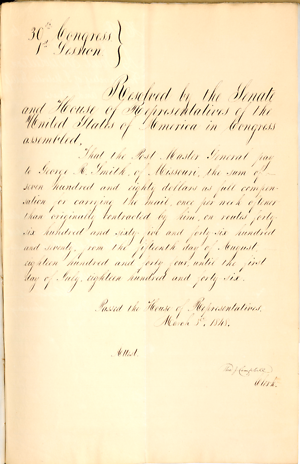 30th Congress
1st Session
Resolved by the Senate
and House of Representatives of the
United States of America in Congress
assembled.
That the Post Master General pay
to George R. Smith, of Missouri, the sum of
seven hundred and eighty dollars as full compen-
sation for carrying the mail, once per week oftener
than originally contracted by him, on routes forty
six hundred and sixty five and forty six hundred
and seventy, from the fifteenth day of August,
eighteen hundred and forty four, until the first
day of July, eighteen hundred and forty six.
Passed the House of Representatives,
March 1848.
Attest
Campbell
Clerk.